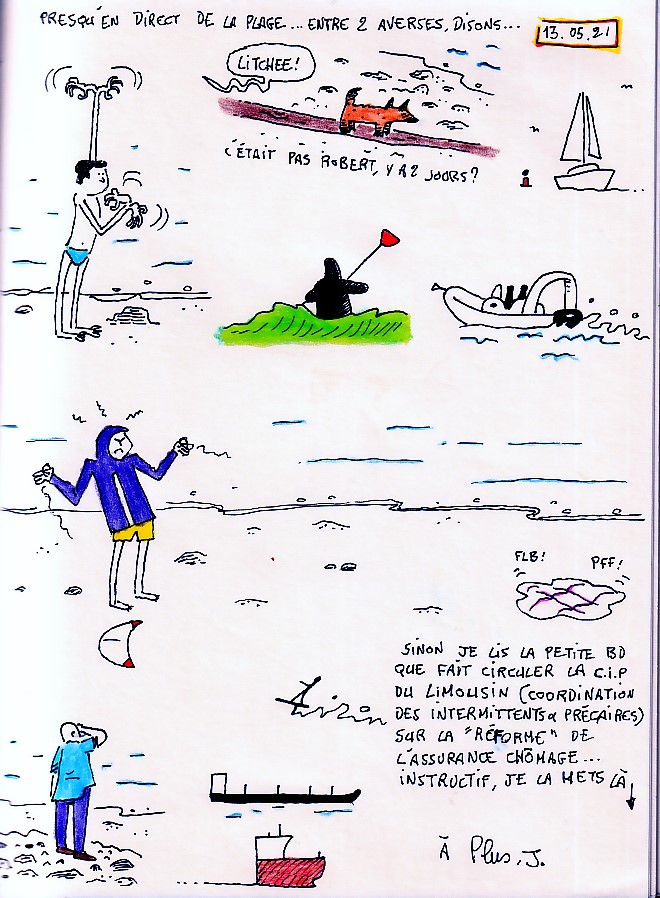 PRESQU'EN DIRECT DE LA PLAGE... ENTRE 2 AVERSES, DISONS...
13.05.21
LITCHEE!
C'ÉTAIT PAS ROBERT, Y A 2 JOURS?
FLB!
PFF!
SINON JE LIS LA PETITE BD
QUE FAIT CIRCULER LA C.I.P
DU LIMOUSIN (COORDINATION
DES INTERMITTENTS & PRÉCAIRES)
SUR LA "RÉFORME" DE
L'ASSURANCE CHÔMAGE...
INSTRUCTIF, JE LA METS LÀ
À Plus, J.